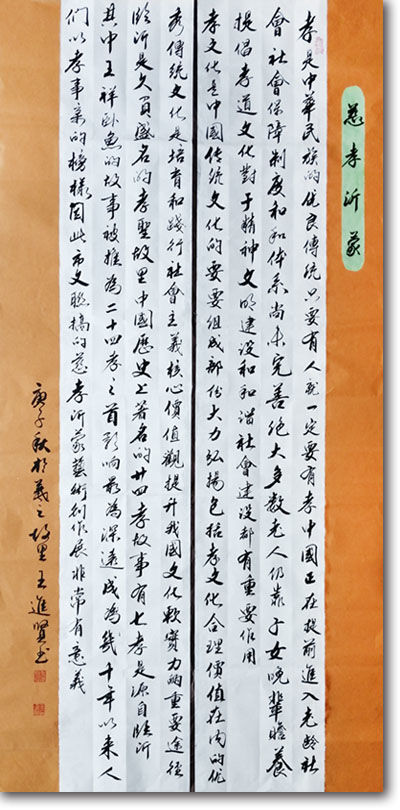 慈孝沂蒙
孝是中華民族的优良傳统只要有人就一定要有孝中國正在提前進入老龄社
會社會保障制度和和体系尚未完善绝大多数老人仍靠子女晚輩贍养
提倡孝道文化對于精神文明建设和和谐社會建设都有重要作用
孝文化是中國传统文化的要要组成部份大力弘揚包括孝文化合理價值在内的优
秀傳统文化是培育和践行社會主義核心價值觀提升我國文化軟實力的重要途徑
临沂是久負盛名的孝聖故里中國歷史上著名的廿四孝故事有七孝是源自临沂
其中王祥卧鱼的故事被推為二十四孝之首影响最為深遠成為幾十年以来人
们以孝事亲的榜樣因此市文联搞的慈孝沂蒙藝術创作展非常有意義
庚子秋於羲之故里王進賢书